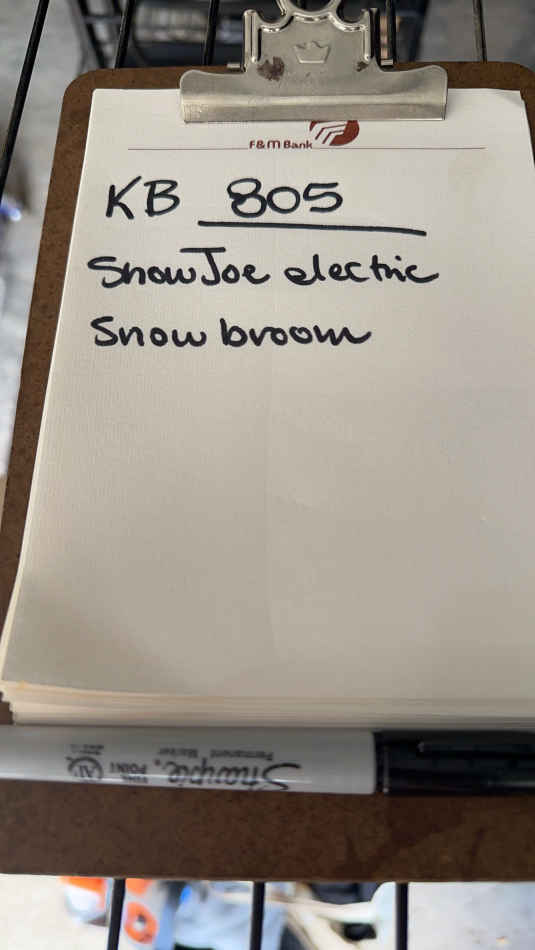 F&M Bank
KB 805
SnowJoe electric
Snow broom
Sharpie.
Permanent Marker
FINE
POINT
AP